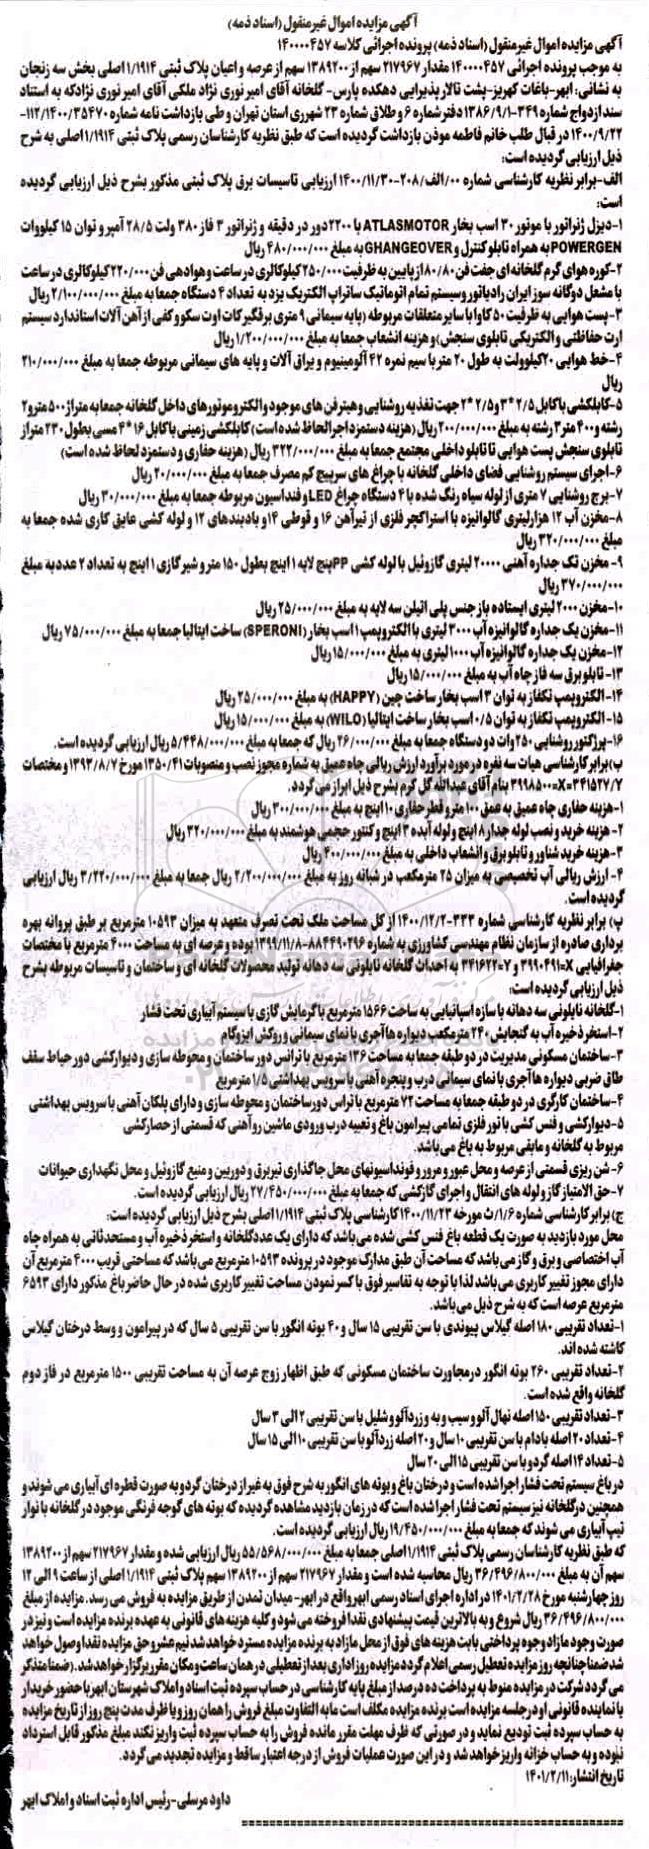 آگهی مزایده اموال غیرمنقول (اسناد ذمه)
آگهی مزایده اموال غیرمنقول (اسناد ذمه) پرونده اجرائی کلاسه ۱۴۰۰۰۰۴۵۷
به موجب پرونده اجرائی ۱۴۰۰۰۰۴۵۷ مقدار ۲۱۷۹۶۷ سهم از ۱۳۸۹۲۰۰ سهم از عرصه و اعیان پلاک ثبتی ۱/۱۹۱۴ اصلی بخش سه زنجان
به نشانی: ابهر-باغات کهریز-پشت تالار پذیرایی دهکده پارس- گلخانه آقای امیر نوری نژاد ملکی آقای امیر نوری نژاد که به استناد
سند ازدواج شماره ۳۴۹-۱۳۸۶/۹/۱ دفتر شماره ۶ و طلاق شماره ۲۳ شهر ری استان تهران و طی بازداشت نامه شماره ۱۱۲/۱۴۰۰/۳۵۴۷۰-
۱۴۰۰/۹/۲۲ در قبال طلب خانم فاطمه موذن بازداشت گردیده است که طبق نظریه کارشناسان رسمی پلاک ثبتی ۱/۱۹۱۴ اصلی به شرح
ذیل ارزیابی گردیده است:
الف-برابر نظریه کارشناسی شماره ۰۰/الف/۲۰۸-۱۴۰۰/۱۱/۳۰ ارزیابی تاسیسات برق پلاک ثبتی مذکور بشرح ذیل ارزیابی گردیده
است:
۱-دیزل ژنراتور با موتور ۳۰ اسب بخار ATLASMOTOR با ۲۲۰۰ دور در دقیقه و ژنراتور ۳ فاز ۳۸۰ ولت ۲۸/۵ آمپر و توان ۱۵ کیلووات
POWERGEN به همراه تابلو کنترل و GHANGEOVER به مبلغ ۴۸۰/۰۰۰/۰۰۰ ریال
۲-کوره هوای گرم گلخانه ای جفت فن ۸۰/۸۰ از پایین به ظرفیت ۲۵۰/۰۰۰ کیلوکالری در ساعت و هوادهی فن ۲۲۰/۰۰۰ کیلوکالری در ساعت
با مشعل دوگانه سوز ایران رادیاتور و سیستم تمام اتوماتیک ساتراپ الکتریک یزد به تعداد ۴ دستگاه جمعا به مبلغ ۲/۱۰۰/۰۰۰/۰۰۰ ریال
۳-پست هوایی به ظرفیت ۵۰ کاوا با سایر متعلقات مربوطه (پایه سیمانی ۹ متری برقگیر کات اوت سکو و کفی از آهن آلات استاندارد سیستم
ارت حفاظتی و الکتریکی تابلوی سنجش) و هزینه انشعاب جمعا به مبلغ ۱/۲۰۰/۰۰۰/۰۰۰ ریال
۴-خط هوایی ۲۰ کیلوولت به طول ۲۰ متر با سیم نمره ۴۲ آلومینیوم و یراق آلات و پایه های سیمانی مربوطه جمعا به مبلغ ۲۱۰/۰۰۰/۰۰۰
ریال
۵-کابلکشی با کابل ۲/۵*۳ و ۲/۵*۲ جهت تغذیه روشنایی و هیتر فن های موجود و الکتروموتورهای داخل گلخانه جمعا به متراژ ۵۰۰ متر و ۲
رشته و ۴۰۰ متر ۳ رشته به مبلغ ۲۰۰/۰۰۰/۰۰۰ ریال (هزینه دستمزد اجرا لحاظ شده است) کابلکشی زمینی با کابل ۱۶*۴ مسی بطول ۲۳۰ متر از
تابلوی سنجش پست هوایی تا تابلو داخلی مجتمع جمعا به مبلغ ۳۲۲/۰۰۰/۰۰۰ ریال (هزینه حفاری و دستمزد لحاظ شده است)
۶-اجرای سیستم روشنایی فضای داخلی گلخانه با چراغ های سرپیچ کم مصرف جمعا به مبلغ ۲۰/۰۰۰/۰۰۰ ریال
۷-برج روشنایی ۷ متری از لوله سیاه رنگ شده با ۴ دستگاه چراغ LED و فنداسیون مربوطه جمعا به مبلغ ۳۰/۰۰۰/۰۰۰ ریال
۸-مخزن آب ۱۲ هزار لیتری گالوانیزه با استراکچر فلزی از تیرآهن ۱۶ و قوطی ۱۴ و بادبندهای ۱۲ و لوله کشی عایق کاری شده جمعا به
مبلغ ۳۲۰/۰۰۰/۰۰۰ ریال
۹- مخزن تک جداره آهنی ۲۰۰۰۰ لیتری گازوئیل با لوله کشی PP پنج لایه ۱ اینچ بطول ۱۵۰ متر و شیر گازی ۱ اینچ به تعداد ۲ عدد به مبلغ
۳۷۰/۰۰۰/۰۰۰ ریال
۱۰-مخزن ۲۰۰۰ لیتری ایستاده باز جنس پلی اتیلن سه لایه به مبلغ ۲۵/۰۰۰/۰۰۰ ریال
۱۱-مخزن یک جداره گالوانیزه آب ۳۰۰۰ لیتری با الکتروپمپ ۱ اسب بخار (SPERONI) ساخت ایتالیا جمعا به مبلغ ۷۵/۰۰۰/۰۰۰ ریال
۱۲-مخزن یک جداره گالوانیزه آب ۱۰۰۰ لیتری به مبلغ ۱۵/۰۰۰/۰۰۰ ریال
۱۳- تابلو برق سه فاز چاه آب به مبلغ ۱۵/۰۰۰/۰۰۰ ریال
۱۴- الکتروپمپ تکفاز به توان ۳ اسب بخار ساخت چین (HAPPY) به مبلغ ۲۵/۰۰۰/۰۰۰ ریال
۱۵- الکتروپمپ تکفاز به توان ۰/۵ اسب بخار ساخت ایتالیا (WILO) به مبلغ ۱۵/۰۰۰/۰۰۰ ریال
۱۶-پرژکتور روشنایی ۲۵۰ وات دو دستگاه جمعا به مبلغ ۲۶/۰۰۰/۰۰۰ ریال که جمعا به مبلغ ۵/۴۴۸/۰۰۰/۰۰۰ ریال ارزیابی گردیده است.
ب) برابر کارشناسی هیات سه نفره در مورد برآورد ارزش ریالی چاه عمیق به شماره مجوز نصب و منصوبات ۱۳۵۰/۴۱ مورخ ۱۳۹۳/۸/۷ و مختصات
X=۳۴۱۵۲۷/۷ ۳۹۹۸۵۰۰ بنام آقای عبدالله گل گرم بشرح ذیل ابراز می گردد.
۱-هزینه حفاری چاه عمیق به عمق ۱۰۰ متر و قطر حفاری ۱۰ اینچ به مبلغ ۳۰۰/۰۰۰/۰۰۰ ریال
۲- هزینه خرید و نصب لوله جدار ۸ اینچ و لوله آبده ۳ اینچ و کنتور حجمی هوشمند به مبلغ ۳۲۰/۰۰۰/۰۰۰ ریال
۳-هزینه خرید شناور و تابلو برق و انشعاب داخلی به مبلغ ۴۰۰/۰۰۰/۰۰۰ ریال
۴- ارزش ریالی آب تخصیصی به میزان ۲۵ مترمکعب در شبانه روز به مبلغ ۲/۲۰۰/۰۰۰/۰۰۰ ریال جمعا به مبلغ ۳/۲۲۰/۰۰۰/۰۰۰ ریال ارزیابی
گردیده است.
پ) برابر نظریه کارشناسی شماره ۳۳۳-۱۴۰۰/۱۲/۲ از کل مساحت ملک تحت تصرف متعهد به میزان ۱۰۵۹۳ مترمربع بر طبق پروانه بهره
برداری صادره از سازمان نظام مهندسی کشاورزی به شماره ۸۸۴۴۹۰۲۹۶-۱۳۹۹/۱۱/۸ بوده و عرصه ای به مساحت ۴۰۰۰ مترمربع با مختصات
جغرافیایی X=۳۹۹۰۴۹۱ و Y=۳۴۱۶۲۲ به احداث گلخانه نایلونی سه دهانه تولید محصولات گلخانه ای و ساختمان و تاسیسات مربوطه بشرح
ذیل ارزیابی گردیده است:
۱-گلخانه نایلونی سه دهانه با سازه اسپانیایی به ساخت ۱۵۶۶ مترمربع با گرمایش گازی با سیستم آبیاری تحت فشار
۲-استخر ذخیره آب به گنجایش ۲۴۰ مترمکعب دیواره ها آجری با نمای سیمانی و روکش ایزوگام
۳-ساختمان مسکونی مدیریت در دو طبقه جمعا به مساحت ۱۳۶ مترمربع با تراس دور ساختمان و محوطه سازی و دیوارکشی دور حیاط سقف
طاق ضربی دیواره ها آجری با نمای سیمانی درب و پنجره آهنی با سرویس بهداشتی ۱/۵ مترمربع
۴-ساختمان کارگری در دو طبقه جمعا به مساحت ۷۲ مترمربع با تراس دور ساختمان و محوطه سازی و دارای پلکان آهنی با سرویس بهداشتی
۵-دیوارکشی و فنس کشی با تور فلزی تمامی پیرامون باغ و تعبیه درب ورودی ماشین رو آهنی که قسمتی از حصارکشی
مربوط به گلخانه و مابقی مربوط به باغ می باشد.
۶- شن ریزی قسمتی از عرصه و محل عبور و مرور و فونداسیونهای محل جاگذاری تیر برق و دوربین و منبع گازوئیل و محل نگهداری حیوانات
۷-حق الامتیاز گاز و لوله های انتقال و اجرای گازکشی که جمعا به مبلغ ۲۷/۴۵۰/۰۰۰/۰۰۰ ریال ارزیابی گردیده است.
ج) برابر کارشناسی شماره ۱/۶/ث مورخه ۱۴۰۰/۱۱/۲۳ کارشناسی پلاک ثبتی ۱/۱۹۱۴ اصلی بشرح ذیل ارزیابی گردیده است:
محل مورد بازدید به صورت یک قطعه باغ فنس کشی شده می باشد که دارای یک عدد گلخانه و استخر ذخیره آب و مستحدثاتی به همراه چاه
آب اختصاصی و برق و گاز می باشد که مساحت آن طبق مدارک موجود در پرونده ۱۰۵۹۳ مترمربع می باشد که مساحتی قریب ۴۰۰۰ مترمربع آن
دارای مجوز تغییر کاربری می باشد لذا با توجه به تفاسیر فوق با کسر نمودن مساحت تغییر کاربری شده در حال حاضر باغ مذکور دارای ۶۵۹۳
مترمربع عرصه است که به شرح ذیل می باشد.
۱-تعداد تقریبی ۱۸۰ اصله گیلاس پیوندی با سن تقریبی ۱۵ سال و ۴۰ بوته انگور با سن تقریبی ۵ سال که در پیرامون و وسط درختان گیلاس
کاشته شده اند.
۲-تعداد تقریبی ۲۶۰ بوته انگور در مجاورت ساختمان مسکونی که طبق اظهار زوج عرصه آن به مساحت تقریبی ۱۵۰۰ مترمربع در فاز دوم
گلخانه واقع شده است.
۳-تعداد تقریبی ۱۵۰ اصله نهال آلو و سیب و به و زردآلو و شلیل با سن تقریبی ۲ الی ۳ سال
۴-تعداد ۲۰ اصله بادام با سن تقریبی ۱۰ سال و ۲۰ اصله زردآلو با سن تقریبی ۱۰ الی ۱۵ سال
۵-تعداد ۱۴ اصله گردو با سن تقریبی ۱۵ الی ۲۰ سال
در باغ سیستم تحت فشار اجرا شده است و درختان باغ و بوته های انگور به شرح فوق به غیر از درختان گردو به صورت قطره ای آبیاری می شوند و
همچنین در گلخانه نیز سیستم تحت فشار اجرا شده است که در زمان بازدید مشاهده گردیده که بوته های گوجه فرنگی موجود در گلخانه با نوار
تیپ آبیاری می شوند که جمعا به مبلغ ۱۹/۴۵۰/۰۰۰/۰۰۰ ریال ارزیابی گردیده است.
که طبق نظریه کارشناسان رسمی پلاک ثبتی ۱/۱۹۱۴ اصلی جمعا به مبلغ ۵۵/۵۶۸/۰۰۰/۰۰۰ ریال ارزیابی شده و مقدار ۲۱۷۹۶۷ سهم از ۱۳۸۹۲۰۰
سهم آن به مبلغ ۳۶/۴۹۶/۸۰۰/۰۰۰ ریال محاسبه شده است و مقدار ۲۱۷۹۶۷ سهم از ۱۳۸۹۲۰۰ سهم پلاک ثبتی ۱/۱۹۱۴ اصلی از ساعت ۹ الی ۱۲
روز چهارشنبه مورخ ۱۴۰۱/۲/۲۸ در اداره اجرای اسناد رسمی ابهر واقع در ابهر- میدان تمدن از طریق مزایده به فروش می رسد. مزایده از مبلغ
۳۶/۴۹۶/۸۰۰/۰۰۰ ریال شروع و به بالاترین قیمت پیشنهادی نقدا فروخته می شود و کلیه هزینه های قانونی به عهده برنده مزایده است و نیز در
صورت وجود مازاد وجوه پرداختی بابت هزینه های فوق از محل مازاد به برنده مزایده مسترد خواهد شد نیم عشر و حق مزایده نقدا وصول خواهد
شد ضمنا چنانچه روز مزایده تعطیل رسمی اعلام گردد مزایده روز اداری بعد از تعطیلی در همان ساعت و مکان مقرر برگزار خواهد شد. (ضمنا متذکر
می گردد شرکت در مزایده منوط به پرداخت ده درصد از مبلغ پایه کارشناسی در حساب سپرده ثبت اسناد و املاک شهرستان ابهر با حضور خریدار
یا نماینده قانونی او در جلسه مزایده است برنده مزایده مکلف است مابه التفاوت مبلغ فروش را همان روز و یا ظرف مدت پنج روز از تاریخ مزایده
به حساب سپرده ثبت تودیع نماید و در صورتی که ظرف مهلت مقرر مانده فروش را به حساب سپرده ثبت واریز نکند مبلغ مذکور قابل استرداد
نبوده و به حساب خزانه واریز خواهد شد و در این صورت عملیات فروش از درجه اعتبار ساقط و مزایده تجدید می گردد.
تاریخ انتشار: ۱۴۰۱/۲/۱۱
داود مرسلی-رئیس اداره ثبت اسناد و املاک ابهر